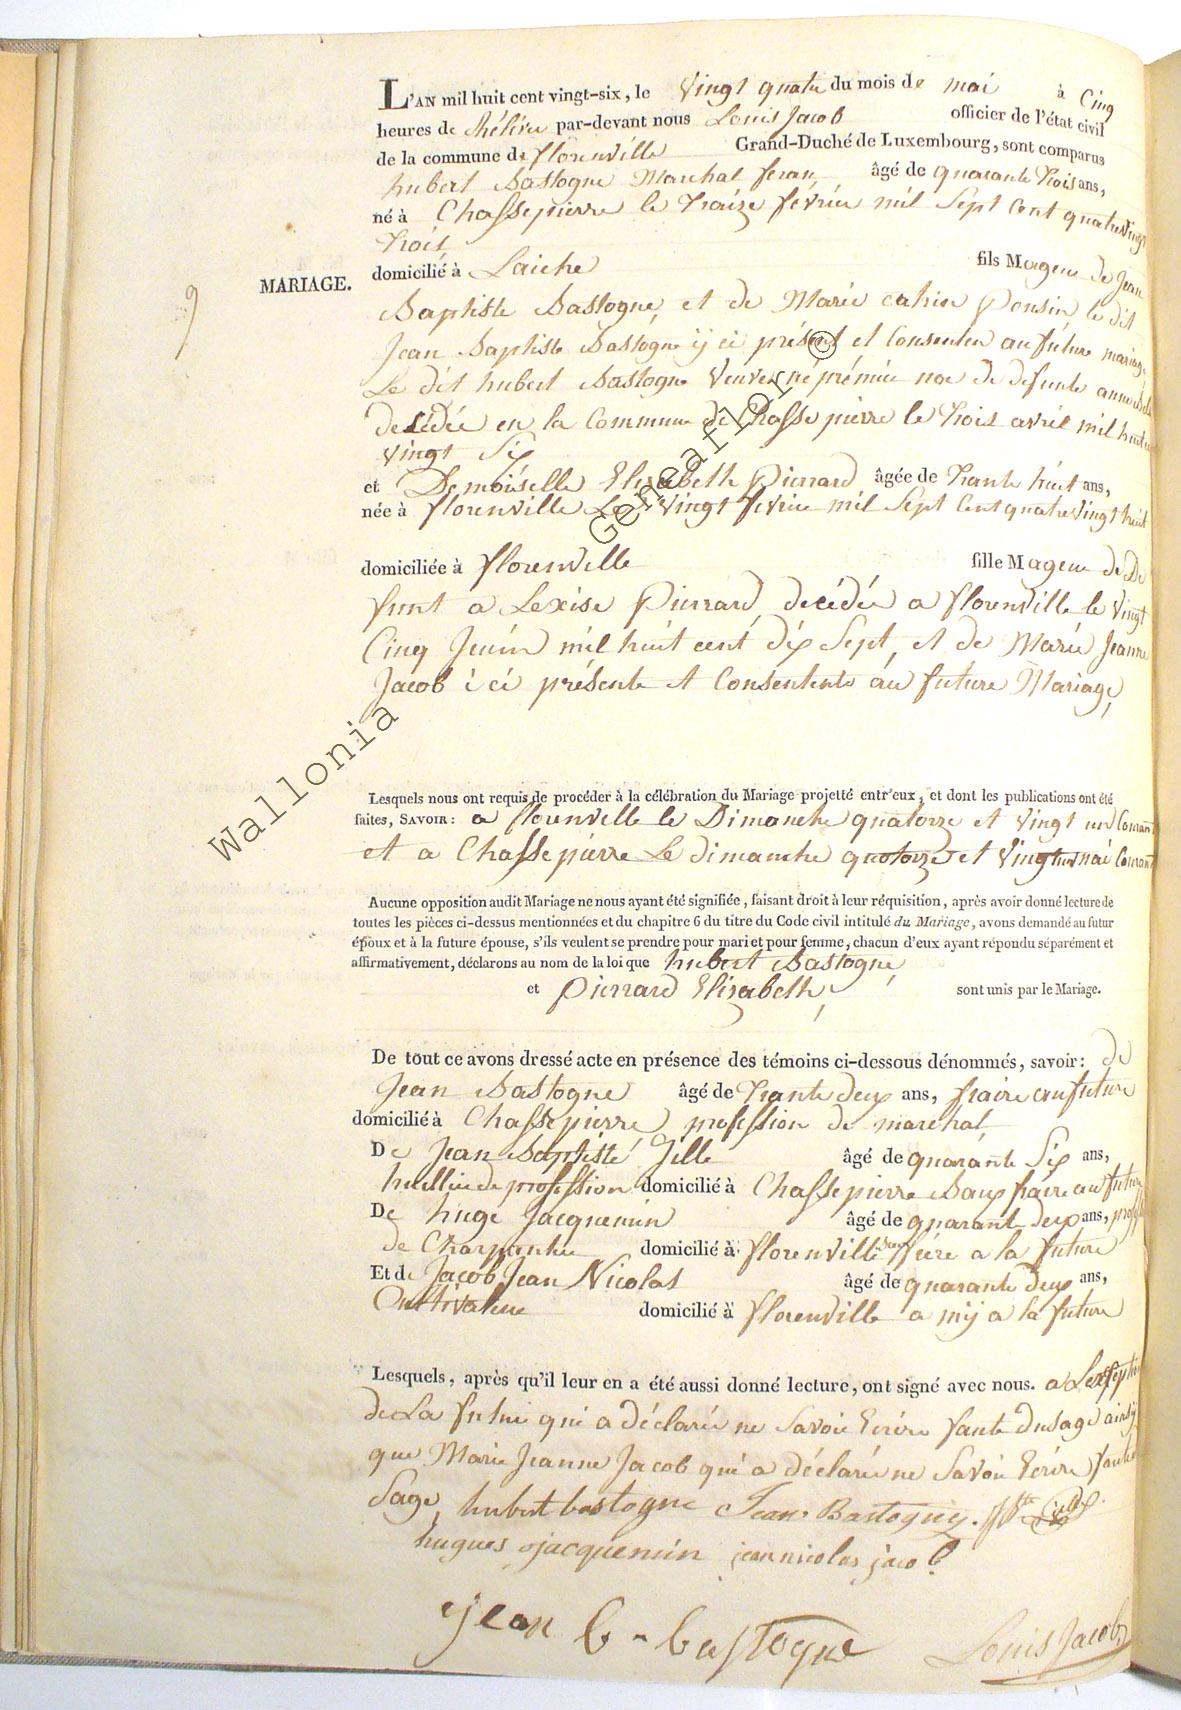 L'AN mil huit cent vingt-six, le vingt quatre du mois de mai à Cinq
heures de par-devant nous Louis Jacob officier de l'état civil
de la commune de florenville Grand-Duché de Luxembourg, sont comparus
hubert Bastogne Marchal feran âgé de quarante trois ans,
né à Chassepierre le traize février mil Sept Cent quatre vingt
trois
domicilié à Laiche fils Mageur de Jean
MARIAGE.
9
Baptiste Bastogne, et de Marie Ponsin le dit
Jean Baptiste Bastogne ÿ ci présent et Consenten au future mariage
Le dit hubert Bastogne Veuve de defunte anne
decédée en la Commune de Chassepierre le trois avril mil huit
vingt Six
et Demoiselle Elisabeth Pierrard âgée de trante huit ans,
née à florenville Le vingt fevrier mil Sept Cent quatre vingt huit
domiciliée à florenville fille Mageure de De
funt a Lexise Pierrard decédée a florenville le vingt
Cinq Juin mil huit cent dix Sept, et de Marie Jeanne
Jacob i ci présente et Consentente au future Mariage,
Lesquels nous ont requis de procéder à la célébration du Mariage projetté entr'eux, et dont les publications ont été
faites, SAVOIR: a florenville le Dimanche quatorze et vingt un Courant
et a Chassepierre Le dimanche quatorze et vingt un mai Courant
Aucune opposition audit Mariage ne nous ayant été signifiée, faisant droit à leur réquisition, après avoir donné lecture de
toutes les pièces ci-dessus mentionnées et du chapitre 6 du titre du Code civil intitulé du Mariage, avons demandé au futur
époux et à la future épouse, s'ils veulent se prendre pour mari et pour femme, chacun d'eux ayant répondu séparément et
affirmativement, déclarons au nom de la loi que hubert Bastogne,
et Pierrard Elizabeth, sont unis par le Mariage.
De tout ce avons dressé acte en présence des témoins ci-dessous dénommés, savoir: de
Jean Bastogne âgé de trante deux ans, fraire au future
domicilié à Chassepierre profession de marechal
De Jean Baptiste Jille âgé de quarante Six ans,
de profession domicilié à Chassepierre Baux fraire au future
De huge Jacquemin âgé de quarante deux ans,
de Charpentie domicilié à florenville beau frere a la future
Et de Jacob Jean Nicolas âgé de quarante deux ans,
Cultivateure domicilié à florenville a mÿ a la future
Lesquels, après qu'il leur en a été aussi donné lecture, ont signé avec nous. a
de La future qui a déclarée ne Savoir Ecrire faute dusage ainsÿ
que Marie Jeanne Jacob qui a déclarée ne Savoir Ecrire faute
Sage, hubert bastogne Jean Bastogne
hugues jacquemin jean nicolas jacob
jean b - bastogne Louis Jacob
Wallonia Geneaflor ©